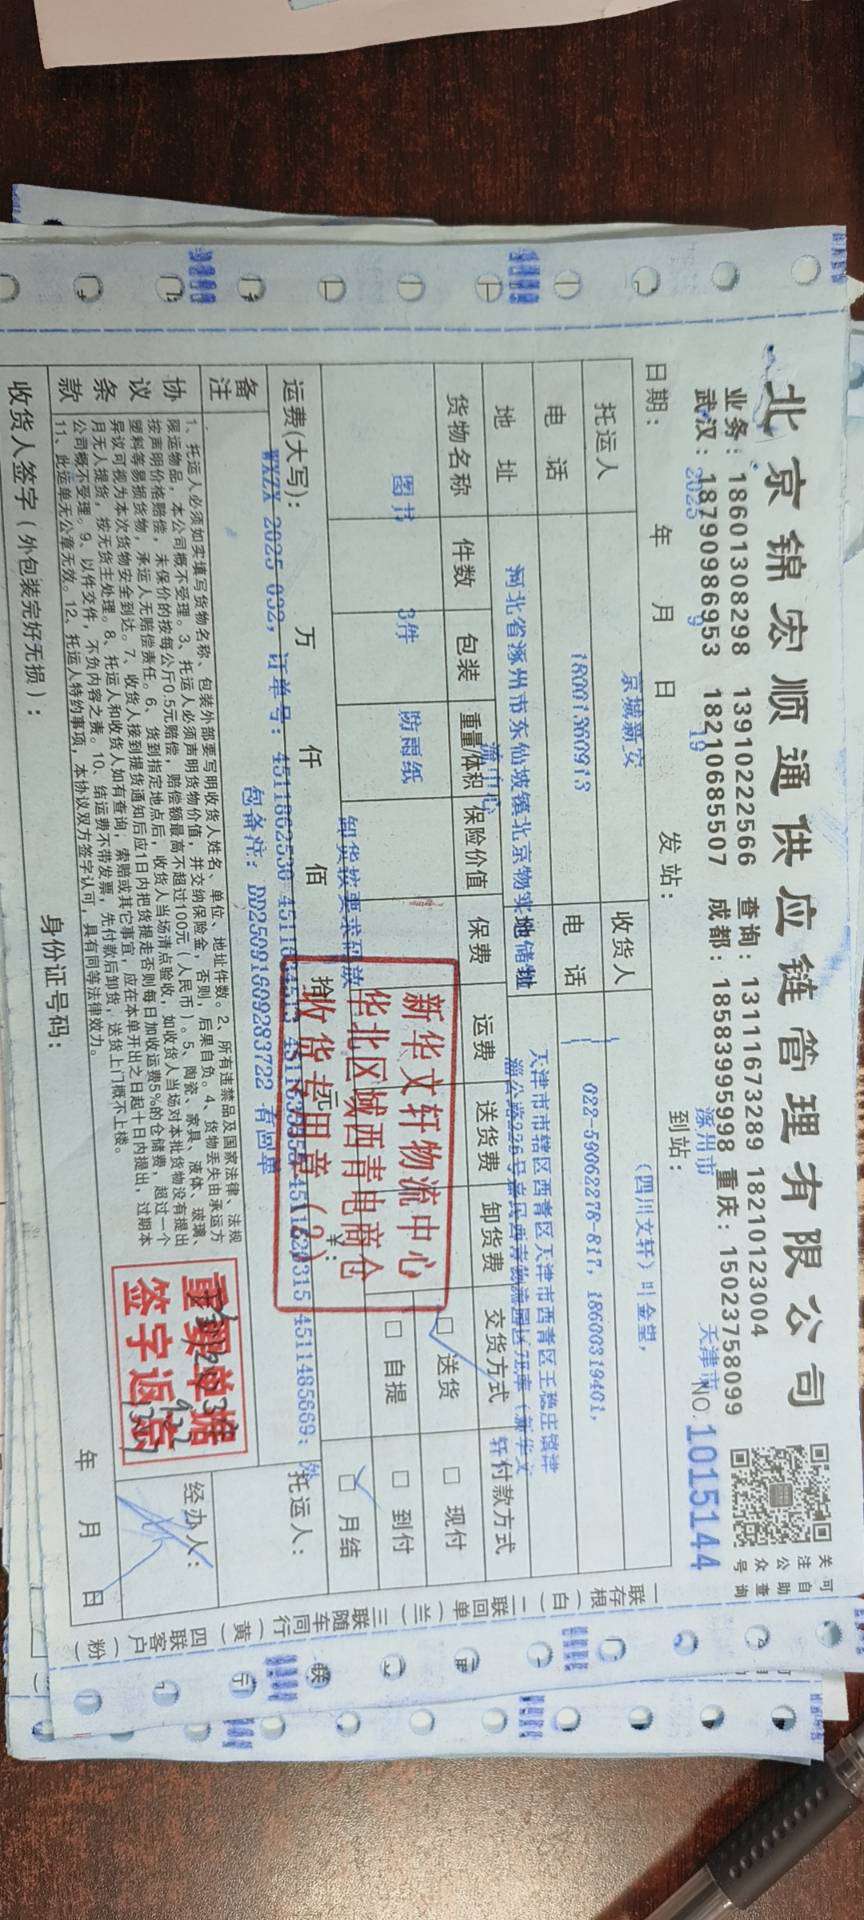 北京锦宏顺通供应链管理有限公司
业务：18601308298 13910222566 查询：13111673289 18210123004
武汉：18790986953 18210685507 成都：18583995998 重庆：15023758099
关注公众号
可自助查询
NO. 1015144
日期： 2025 年 9 月 19 日 发站： 涿州市 到站： 天津市
托运人 京城新安 收货人 （四川文轩）叶金望，
电话 18001360913 电话 022-59062278-817，18600319401，
地址 河北省涿州市东仙坡镇北京物 地址 天津市市辖区西青区天津市西青区王稳庄镇津
流中心
淄公路226号
货物名称 件数 包装 重量/体积 保险价值 保费 运费 送货费 卸货费 交货方式 付款方式
图书 3件 防雨纸 卸货按要求码放
□ 送货 □ 现付
□ 自提 □ 到付
□ 月结
运费(大写)： 万 仟 佰 拾 元 ¥：
备注 WXZX-2025-092，订单号：4511862530
包备注：DD25091609283722 有回单
托运人：
新华文轩物流中心
华北区域西青电商仓
收货专用章（2）
协议条款
1、托运人必须如实填写货物名称、包装外部要写明收货人姓名、单位、地址件数。2、所有违禁品及国家法律、法规
限运物品，本公司概不受理。3、托运人必须声明货物价值，并交纳保险金，否则，后果自负。4、货物丢失由承运方
按声明价格赔偿，未保价的按每公斤0.5元赔偿，赔偿额最高不超过100元（人民币）。5、陶瓷、家具、液体、玻璃、
塑料等易损货物，承运人无赔偿责任。6、货到指定地点后，收货人当场清点验收，如收货人当场对本批货物没有提出
异议可视为本次货物安全到达。7、收货人接到提货通知后应1日内把货提走否则每日加收运费5%的仓储费，超过一个
月无人提货，按无货主处理。8、托运人和收货人如有查询，索赔或其它事宜，应在本单开出之日起十日内提出，过期本
公司概不受理。9、以件交件，不负内容之责。10、结运费不带发票，先付款后卸货，送货上门概不上楼。
11、此运单无公章无效。12、托运人特约事项，本协议双方签字认可，具有同等法律效力。
重要单据
签字返回
经办人：
收货人签字（外包装完好无损）： 身份证号码： 年 月 日
一联存根（白）二联回单（兰）三联随车同行（黄）四联客户（粉）